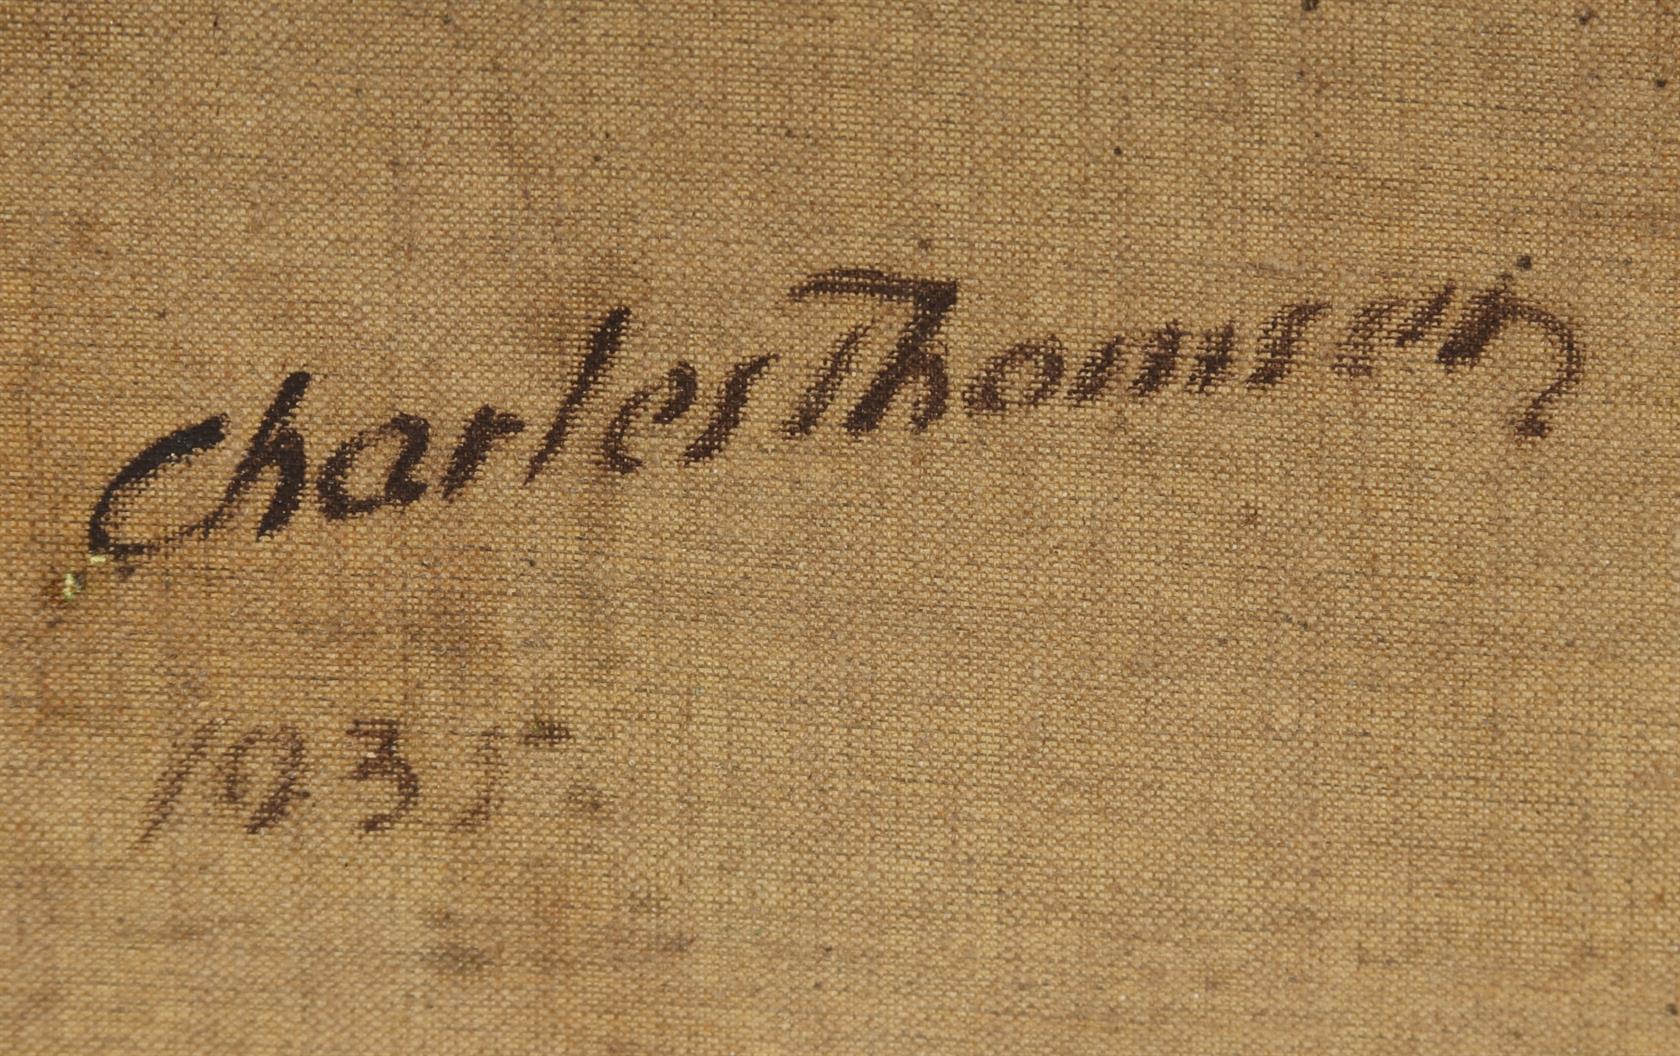 Charles Thomsen
1935